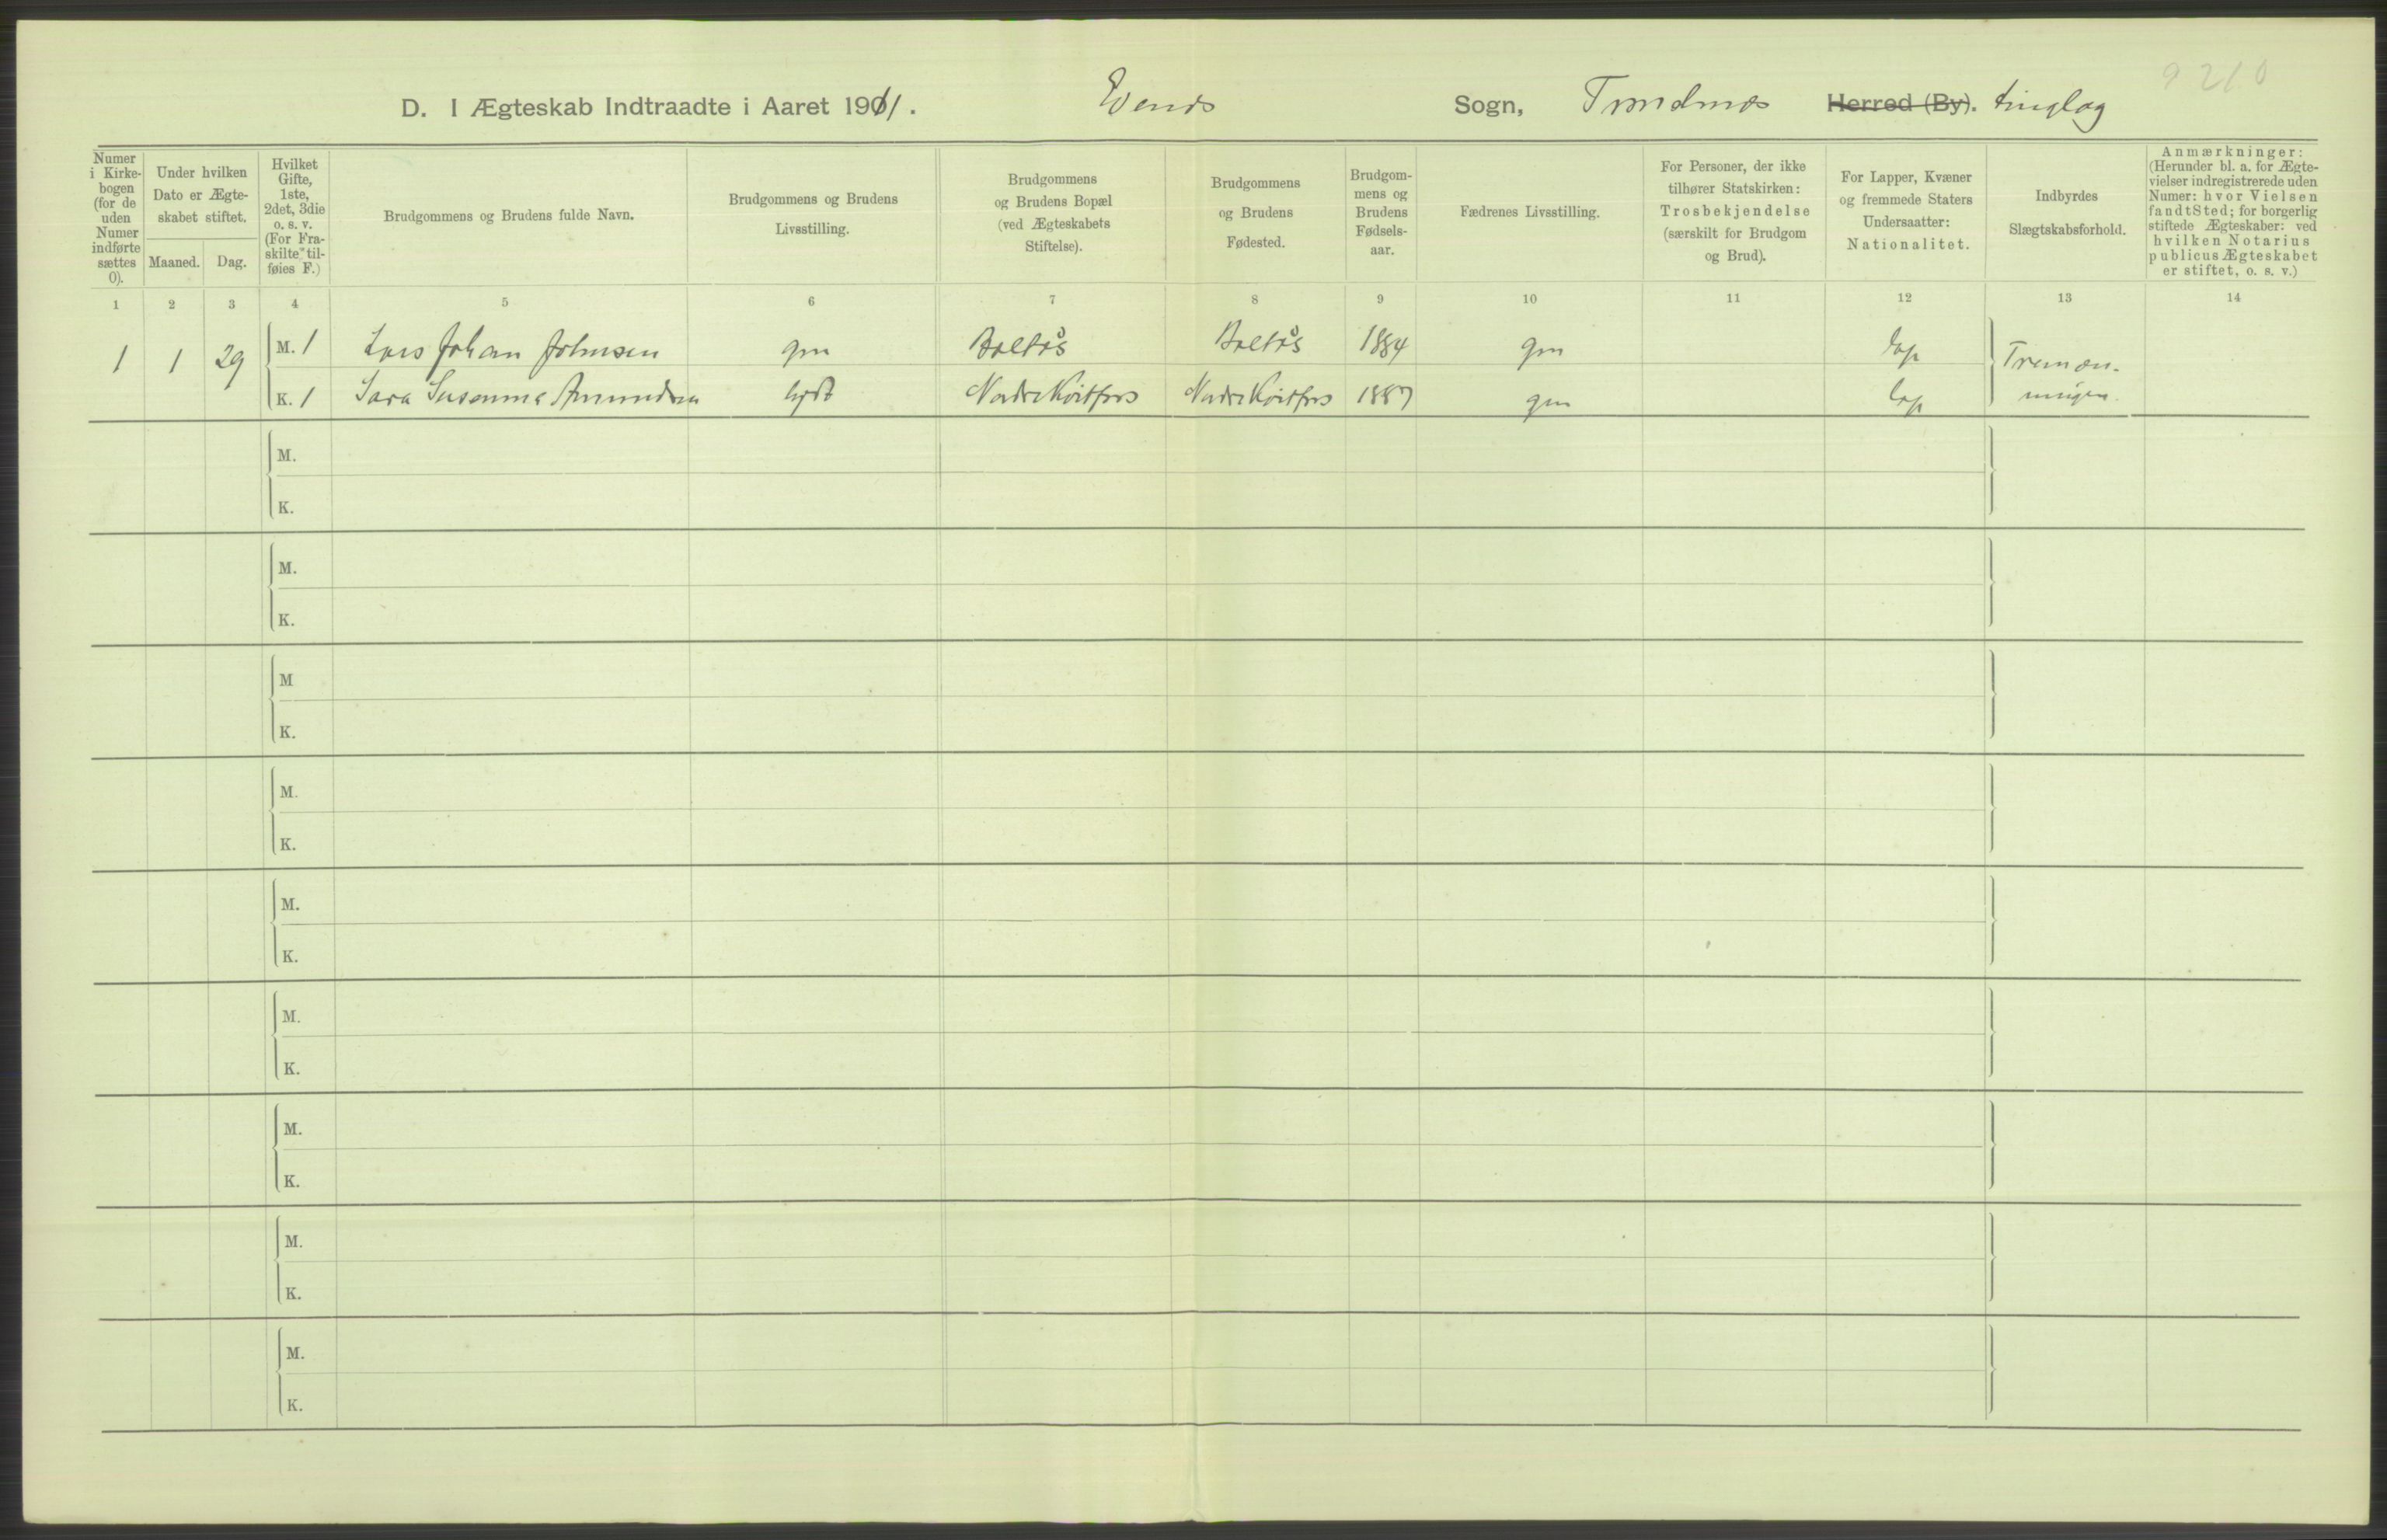 9210
D. I Ægteskab Indtraadte i Aaret 1911. Evenes Sogn, Trondenes Herred (By). tinglag
Numer i Kirke-bogen (for de uden Numer indførte sættes 0).
Under hvilken Dato er Ægte-skabet stiftet.
Maaned. Dag.
Hvilket Gifte, 1ste, 2det, 3die o. s. v. (For Fra-skilte til-føies F.)
Brudgommens og Brudens fulde Navn.
Brudgommens og Brudens Livsstilling.
Brudgommens og Brudens Bopæl (ved Ægteskabets Stiftelse).
Brudgommens og Brudens Fødested.
Brudgom-mens og Brudens Fødsels-aar.
Fædrenes Livsstilling.
For Personer, der ikke tilhører Statskirken: Trosbekjendelse (særskilt for Brudgom og Brud).
For Lapper, Kvæner og fremmede Staters Undersaatter: Nationalitet.
Indbyrdes Slægtskabsforhold.
Anmærkninger: (Herunder bl. a. for Ægte-vielser indregistrerede uden Numer: hvor Vielsen fandt Sted; for borgerlig stiftede Ægteskaber: ved hvilken Notarius publicus Ægteskabet er stiftet, o. s. v.)
1 2 3 4 5 6 7 8 9 10 11 12 13 14
1 1 29 M. 1 Lars Johan Johnsen gm Boltås Boltås 1884 gm lap Tremæn-
K. 1 Sara Susanna Amundsen Nordre Kvitfors Nordre Kvitfors 1887 gm lap ningen.
M.
K.
M.
K.
M
K.
M.
K.
M.
K.
M.
K.
M.
K.
M.
K.
M.
K.